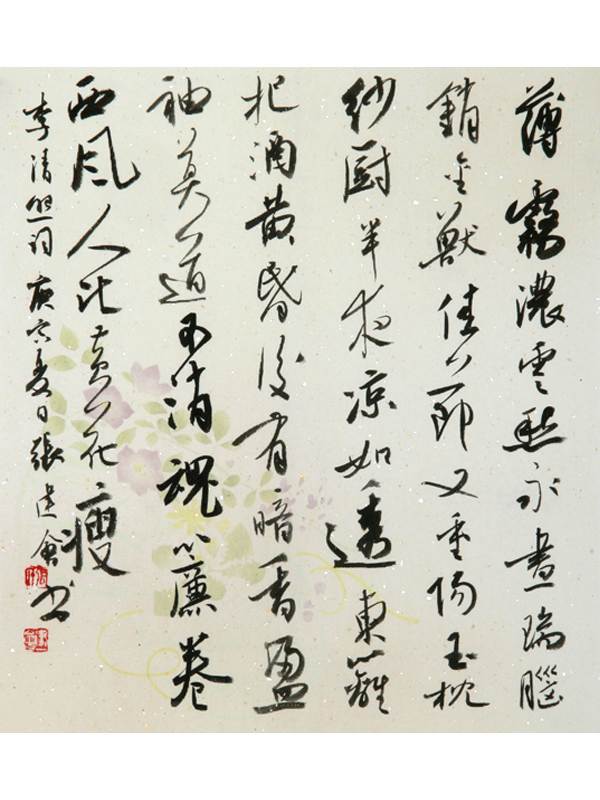 薄霧濃雲愁永晝瑞腦
銷金獸佳節又重陽玉枕
紗厨半夜凉初透東籬
把酒黄昏後有暗香盈
袖莫道不消魂簾卷
西風人比黄花瘦
李清照詞庚寅夏日張建會書